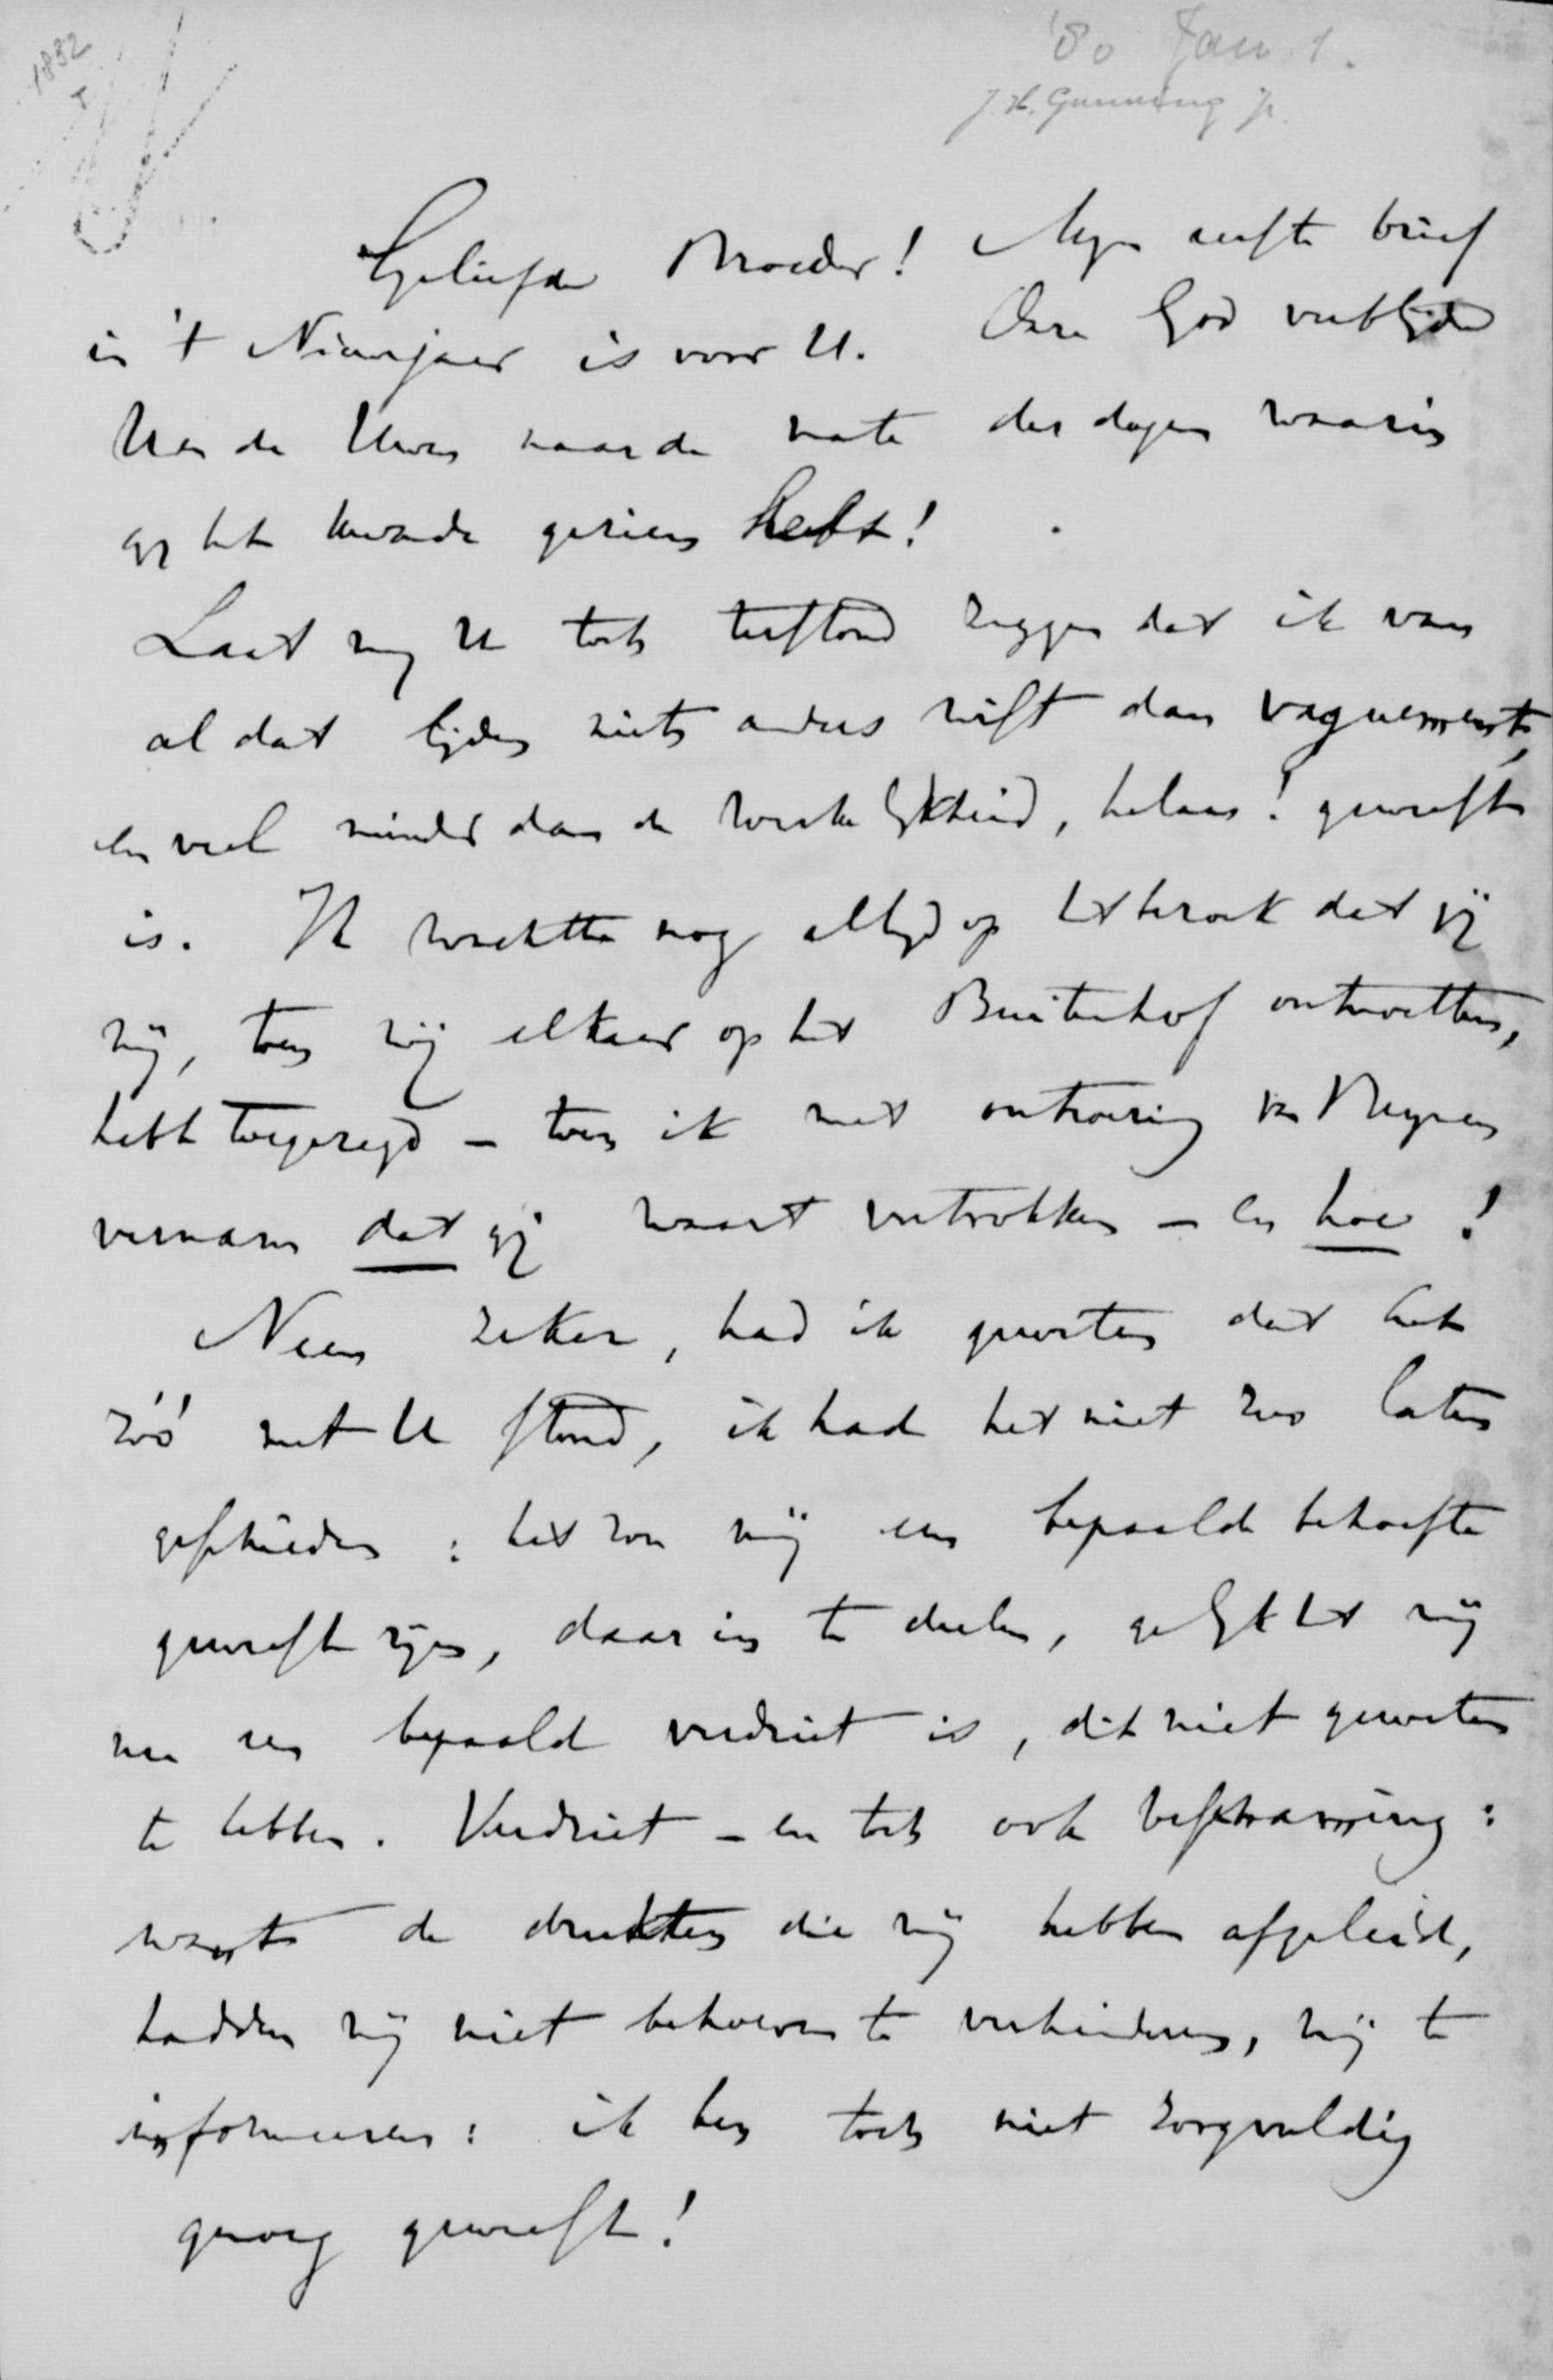 1832
'80 Jan. 1.
J. H. Gunning Jr.
Geliefde Broeder! Mijn eerste brief
in 't Nieuwjaar is voor U. Onze God verblijde
U en de Uwen naar de mate der dagen waarin
gij het kwade gezien hebt!
Laat mij U toch terstond zeggen dat ik van
al dat lijden niets anders wist dan vaguement,
en veel minder dan de werkelijkheid, helaas! geweest
is. Ik wachtte nog altijd op het bezoek dat gij
mij, toen wij elkaar op het Buitenhof ontmoetten,
hebt toegezegd – toen ik met ontroering van
vernam dat gij waart vertrokken – en hoe!
Neen zeker, had ik geweten dat het
zóó met U stond, ik had het niet zoo laten
geschieden: het zou mij een bepaalde behoefte
geweest zijn, daarin te deelen, gelijk het mij
nu een bepaald verdriet is, dit niet geweten
te hebben. Verdriet – en toch ook beschaming:
want de drukten die mij hebben afgeleid,
hadden mij niet behoeven te verhinderen, mij te
informeeren: ik ben toch niet zorgvuldig
genoeg geweest!